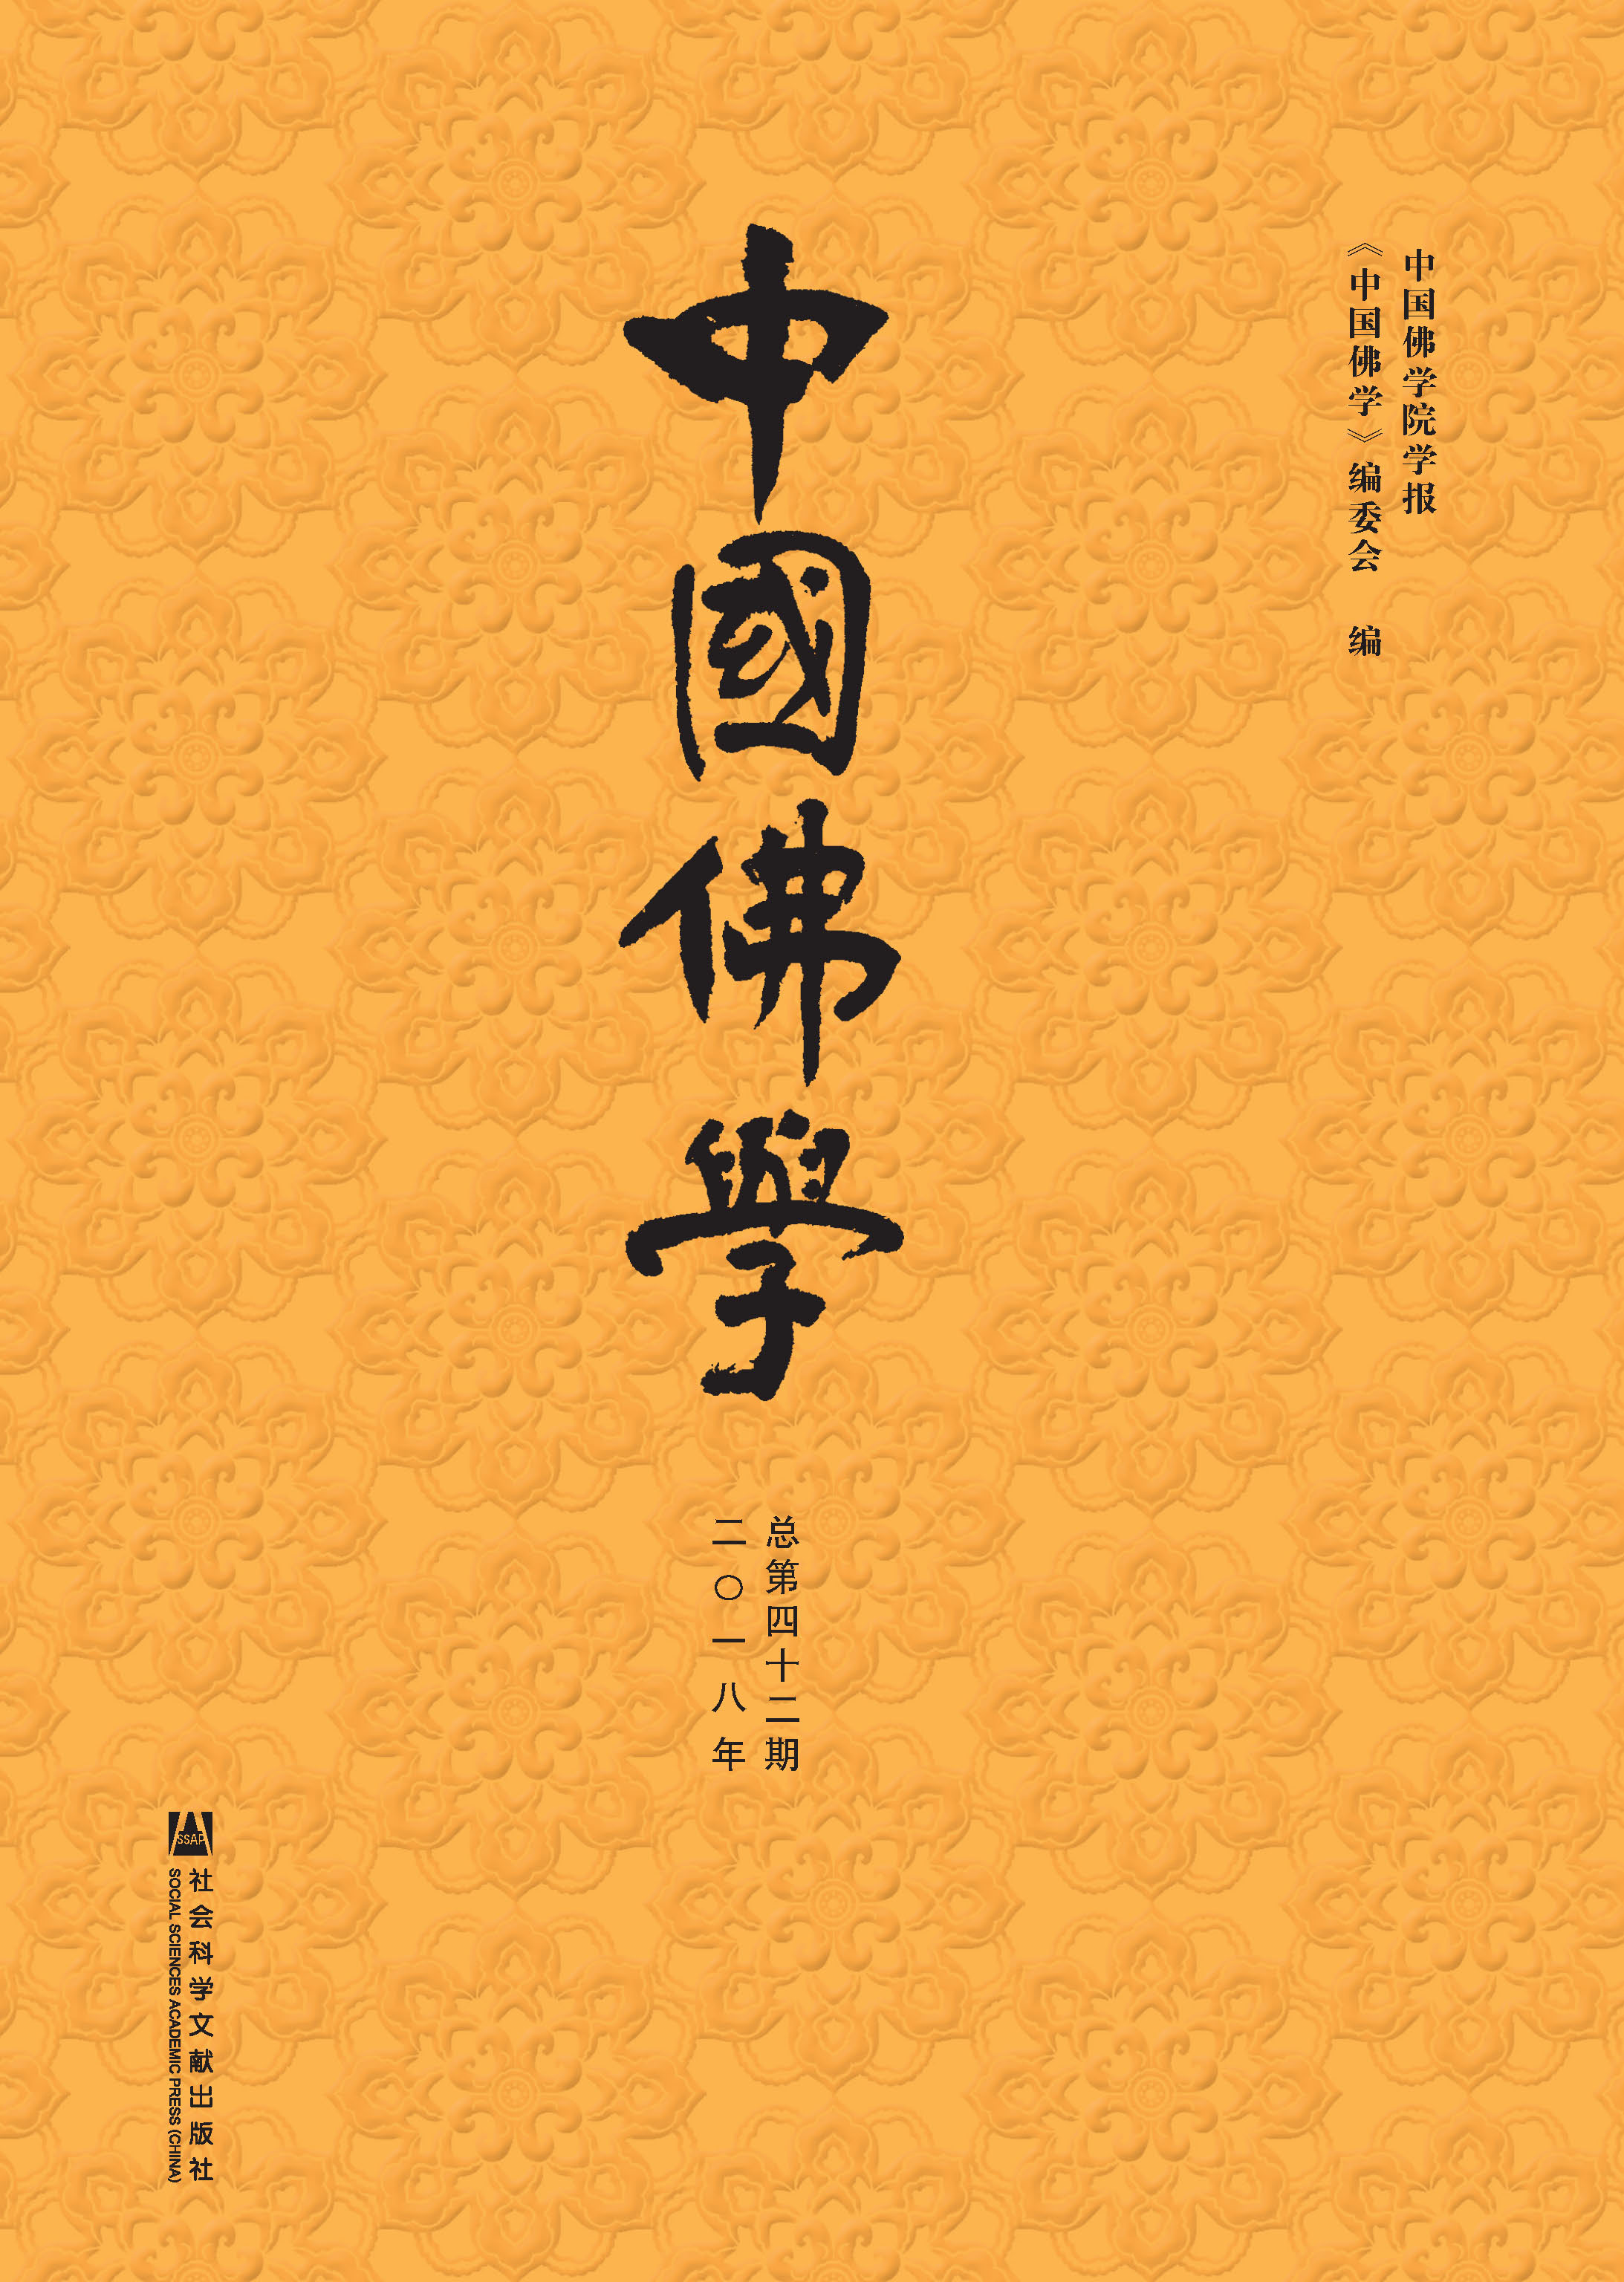 中国佛学院学报
《中国佛学》编委会 编
中國佛學
总第四十二期
二〇一八年
SSAP
社会科学文献出版社
SOCIAL SCIENCES ACADEMIC PRESS (CHINA)